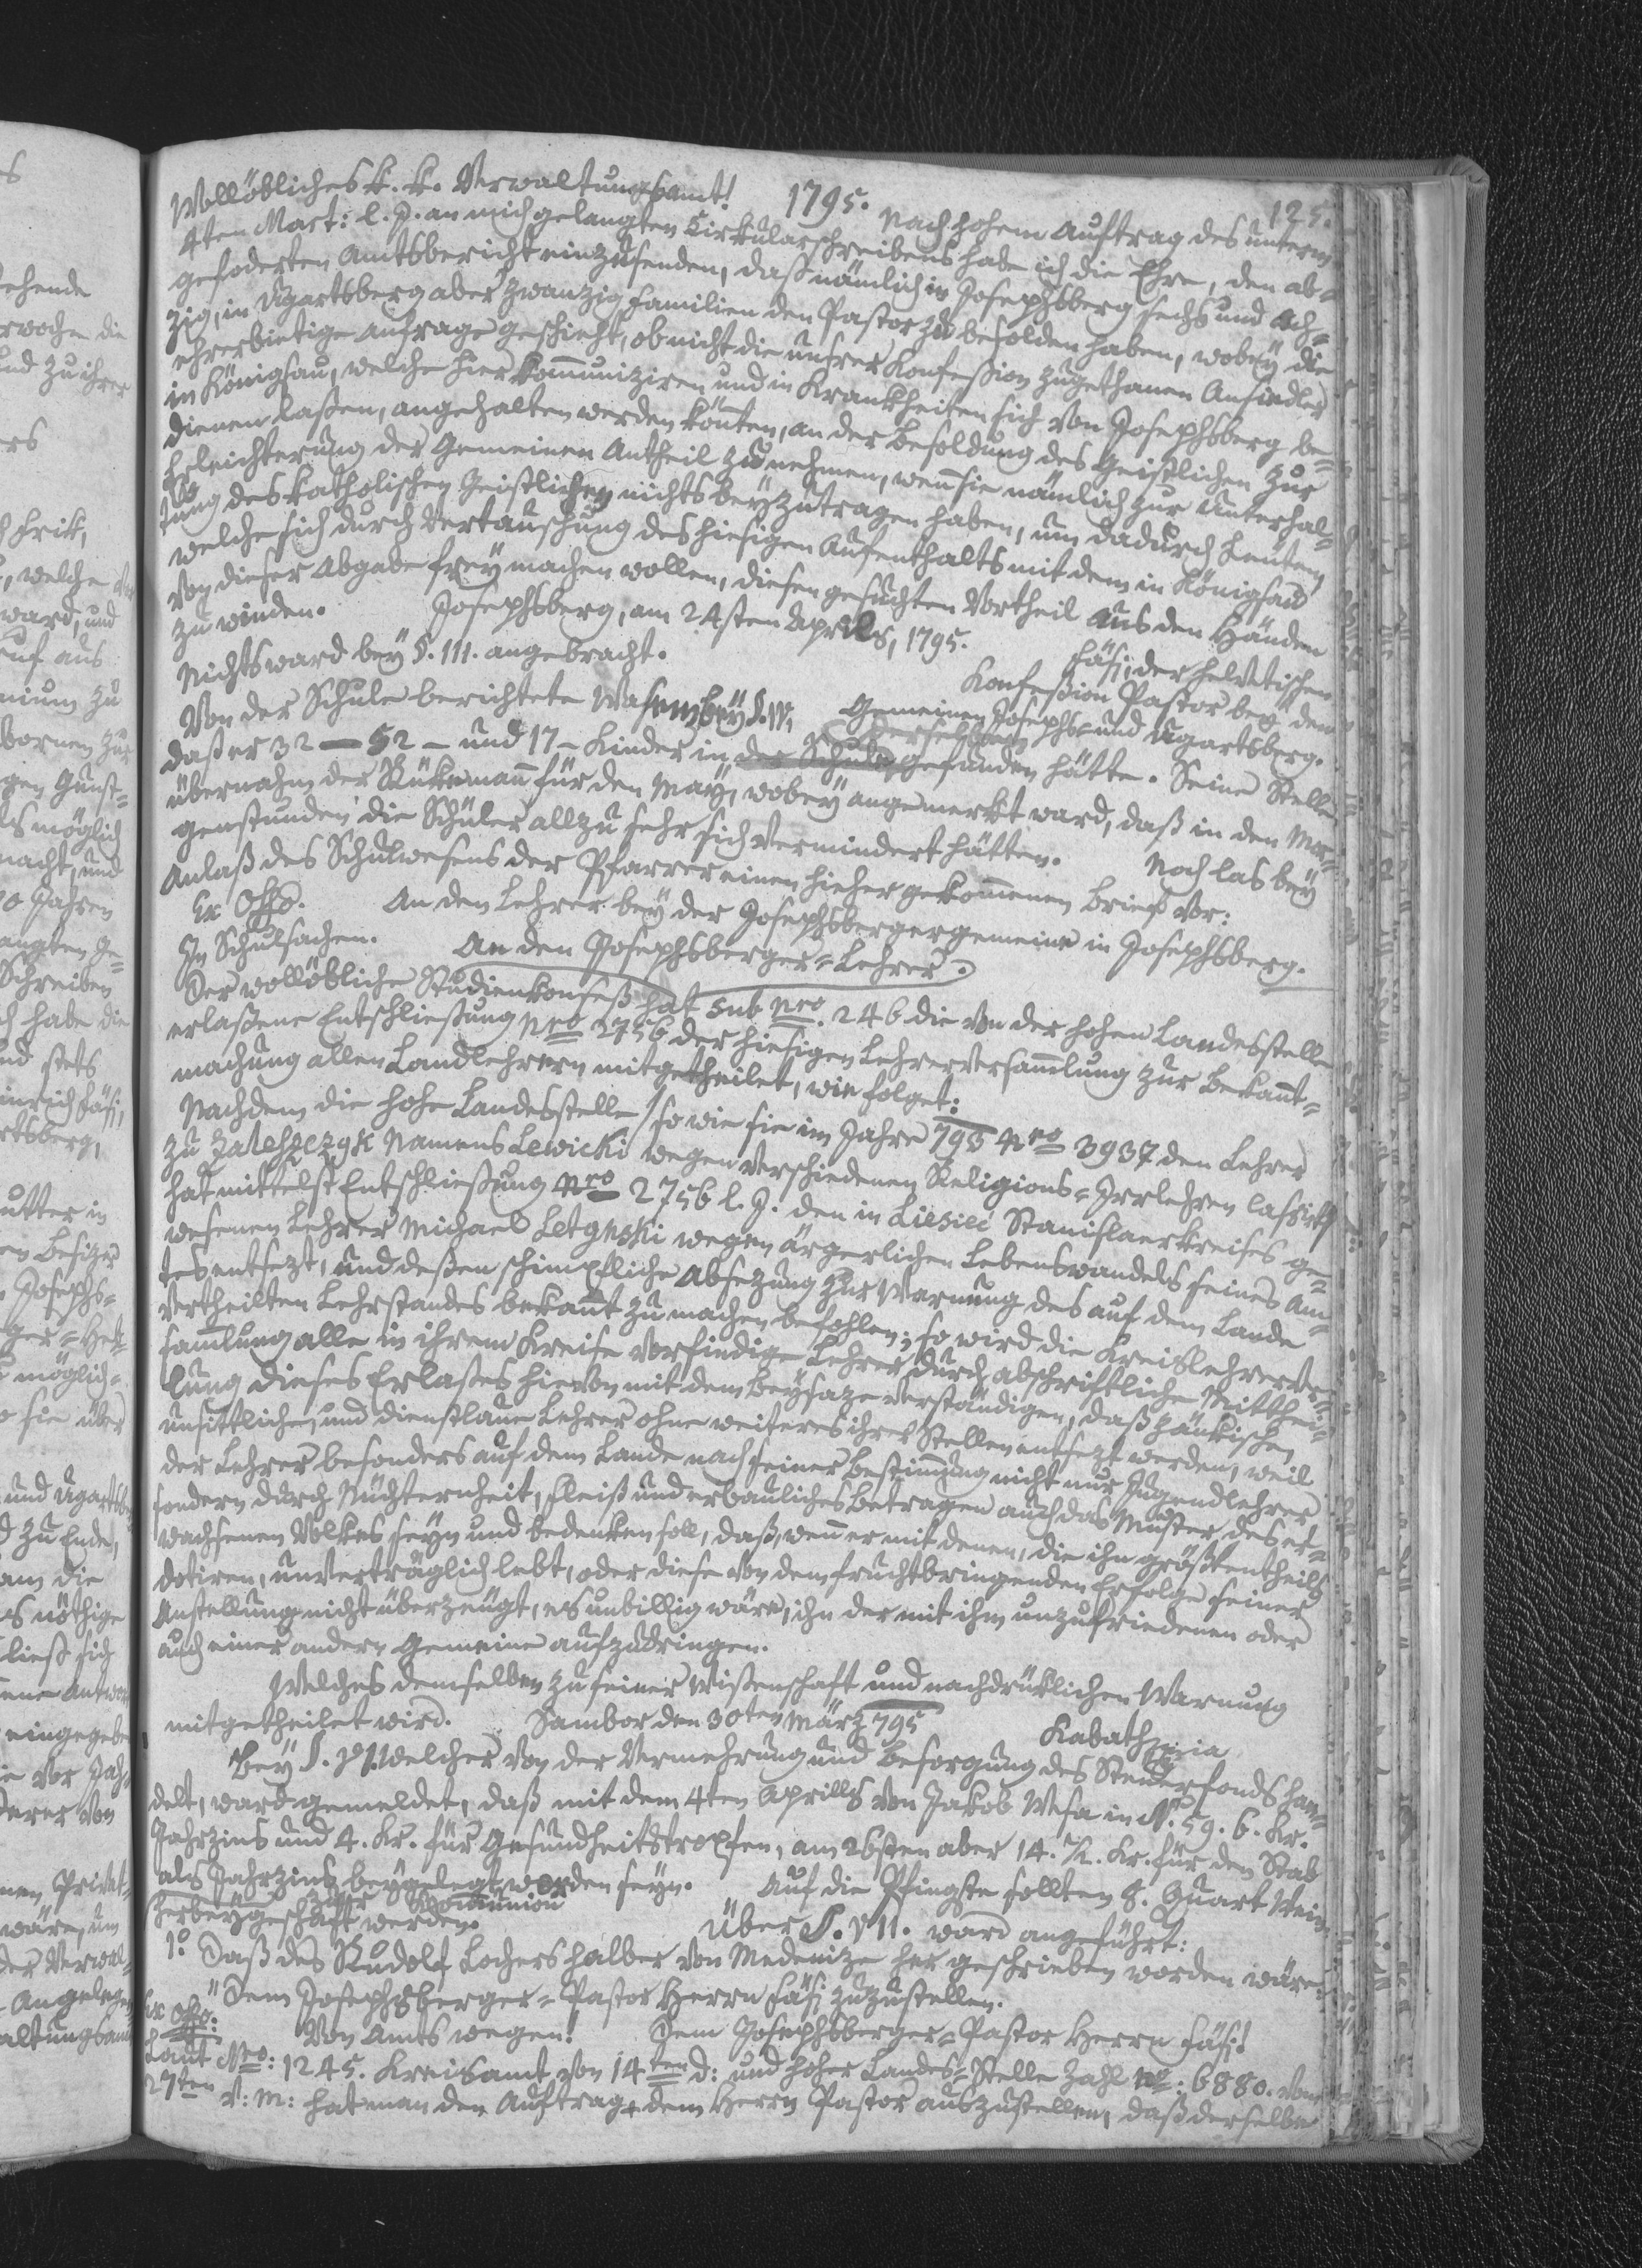 1795.
125.
Wollöbliches k. k. Verwaltungsamt! Nach hohem Auftrag des unterm
4ten Mart: l. J. an mich gelangten Cirkularschreibens habe ich die Ehre, den ab-
gefoderten Amtsbericht einzusenden, daß nämlich in Josephsberg sechs und Ach-
zig, in Ugartsberg aber zwanzig Familien den Pastor zu besolden haben, wobey die
ehrerbietige Anfrage geschieht, ob nicht die unsrer Konfession zugethanen Ansiedler
in Königsau, welche hier kommuniziren und in Krankheiten sich von Josephsberg be-
dienen laßen, angehalten werden könten, an der Besoldung des Geistlichen zur
Erleichterung der Gemeinen Antheil zu nehmen, wenn sie nämlich zur Unterhal-
tung des katholischen Geistlichen nichts beyzutragen haben, um dadurch Leuten
welche sich durch Vertauschung des hiesigen Aufenthalts mit dem in Königsau
von dieser Abgabe frey machen wollen, diesen gesuchten Vortheil aus den Händen
zu winden. Josephsberg, am 24sten Aprils, 1795.
Fäsi, der helvetischen
Konfeßion Pastor bey den
Gemeinen Josephs- und Ugartsberg.
Nichts ward bey §. III. angebracht.
Von der Schule berichtete Wasem bey §. IV.
daß er 32 — 52 — und 17 — Kinder in derselben gefunden hätte. Seine Stelle
übernahm der Rükemann für den May, wobey angemerkt ward, daß in den Mor-
genstunden die Schüler allzu sehr sich vermindert hätten. Noch las bey
Anlaß des Schulwesens der Pfarrer einen hieher gekommenen Brief vor:
Ex Offo. An den Lehrer bey der Josephsbergergemeine in Josephsberg.
In Schulsachen. An den Josephsberger-Lehrer.
Der wollöbliche Studienkonseß hat sub Nro. 246 die von der hohen Landesstelle
erlaßene Entschließung Nro 2756 der hiesigen Lehrerversammlung zur Bekannt-
machung allen Landlehrern mitgetheilet, wie folget:
Nachdem die hohe Landesstelle so wie sie im Jahre 793 Nro 3937 den Lehrer
zu Zaleszczyk Namens Lewicki wegen verschiedenen Religions-Irrlehren cassirt
hat mittelst Entschließung Nro 2756 l. J. den in Stanislauerkreises ge-
wesenen Lehrer Michael Letynski wegen ärgerlichen Lebenswandels seines Am-
tes entsezt, und deßen schimpfliche Absezung zur Warnung des auf dem Lande
vertheilten Lehrstandes bekannt zu machen befohlen; so wird die Kreislehrerver-
sammlung alle in ihrem Kreise vorfindige Lehrer durch abschriftliche Mitthei-
lung dieses Erlaßes hievon mit dem Beysaze verständigen, daß zänkische,
unsittliche, und dienstlaue Lehrer ohne weiteres ihrer Stellen entsezt werden, weil
der Lehrer besonders auf dem Lande nach seiner Bestimmung nicht nur Jugendlehrer
sondern durch Nüchternheit, Fleiß und erbauliches Betragen auch das Muster des er-
wachsenen Volkes seyn und bedenken soll, daß, wenn er mit denen, die ihn größtentheils
dotiren, unverträglich lebt, oder diese von dem fruchtbringenden Erfolge seiner
Anstellung nicht überzeugt, es unbillig wäre, ihn der mit ihm unzufriedenen oder
auch einer andern Gemeine aufzudringen.
Welches demselben zu seiner Wißenschaft und nachdrüklichen Warnung
mitgetheilet wird. Sambor den 30ten März 795
Kabath
Bey §. VI. welcher von der Vermehrung und Besorgung des Steuerfonds han-
delt, ward gemeldet, daß mit dem 4ten Aprills von Jakob Wesa in N. 59. 6. Kr.
Jahrzins und 4. Kr. für Gesundheitstropfen, am 26sten aber 14. Kr. für den Stab
als Jahrzins beygelegt worden seyn. Auf die Pfingste sollten 8. Quart Wein
zur Kommunion
herbeygeschaft werden. Über §. VII. ward angeführt:
1o. Daß des Rudolf Lochers halber von Medenize her geschrieben worden wäre:
"Dem Josephsberger-Pastor Herrn Fäsi zuzustellen.
Ex Offo: Von Amts wegen! Dem Josephsberger-Pastor Herrn Fäsi!
Laut Nro: 1245. Kreisamt von 14ten d: und hoher Landes-Stelle Zahl No: 6880. vom
27ten v: M: hat man den Auftrag, dem Herrn Pastor auszustellen, daß derselbe